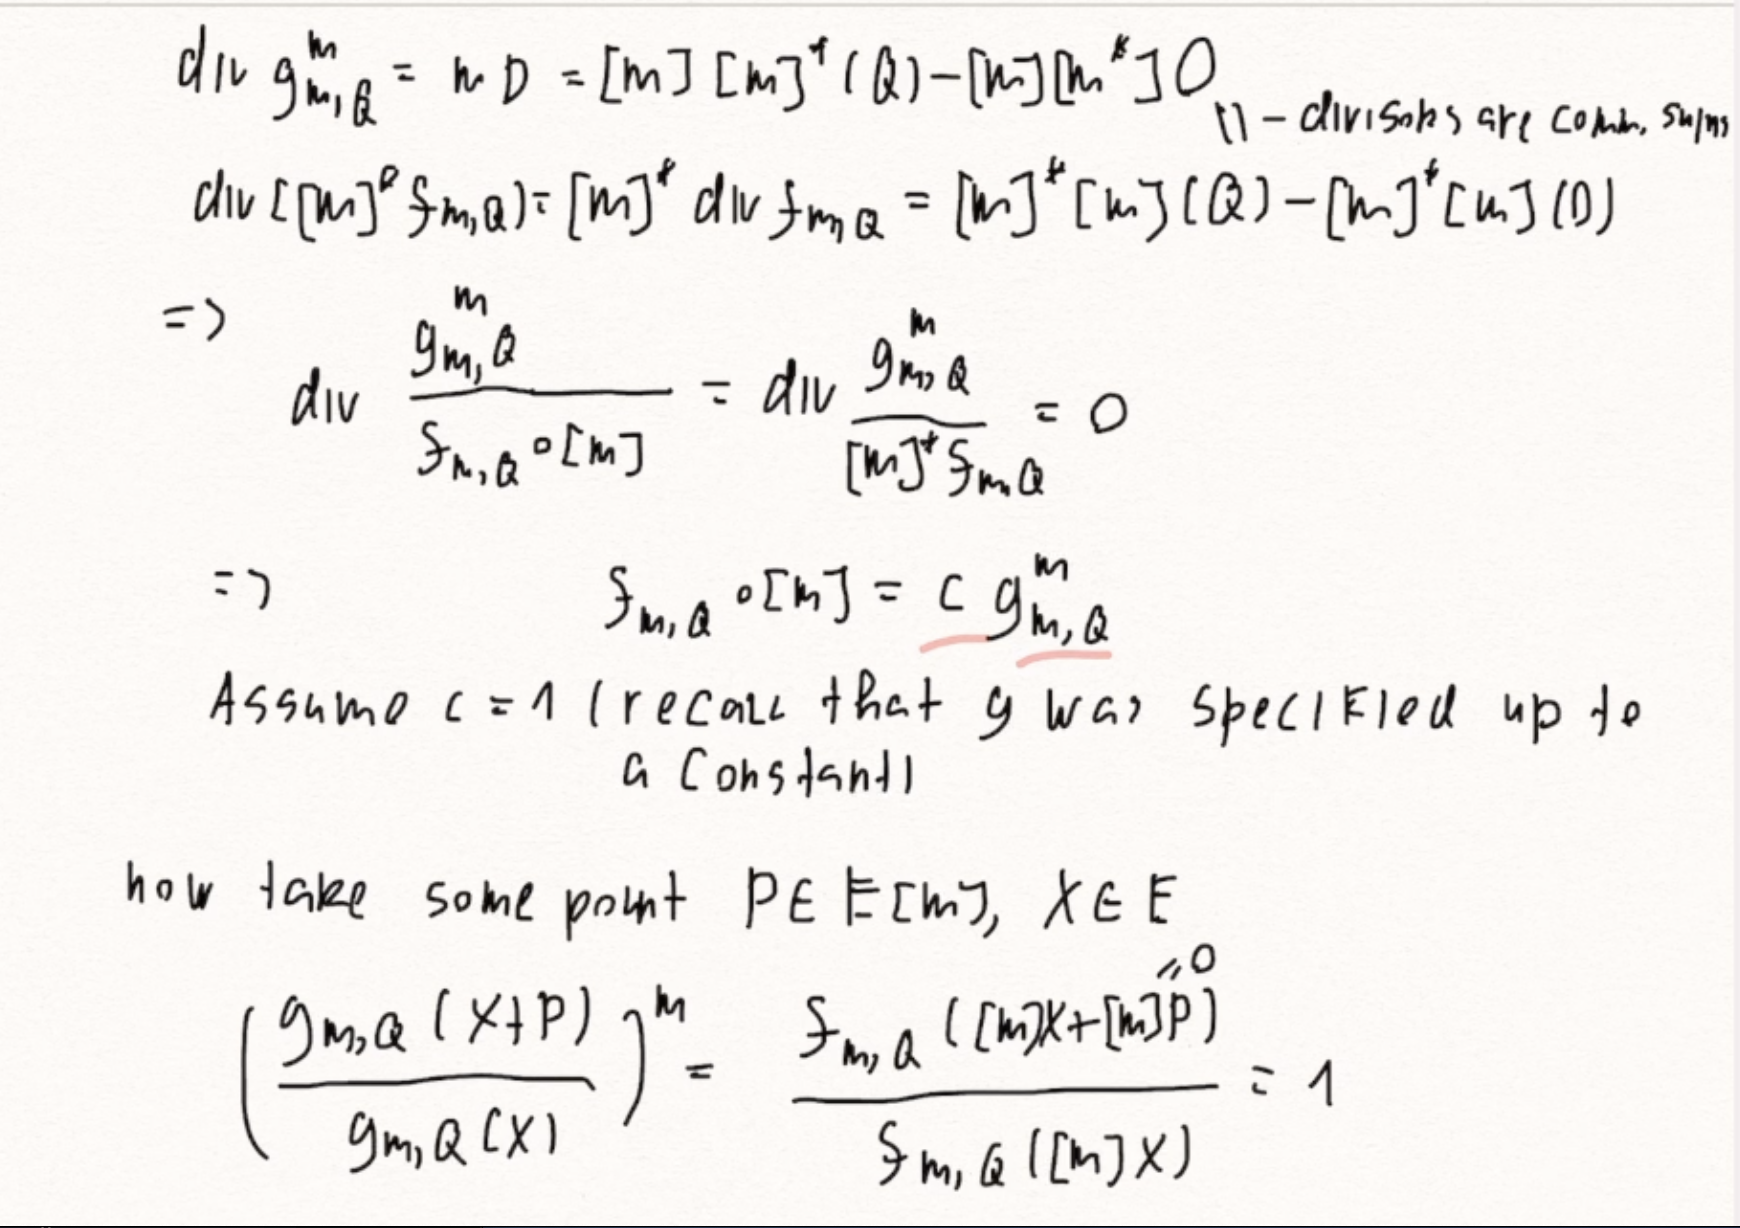 div g_{m,Q}^m = m D = [m][m]^*(Q) - [m][m^*]O
|| - divisors are comm. sums
div([m]^* f_{m,Q}) = [m]^* div f_{m,Q} = [m]^*[m](Q) - [m]^*[m](O)
=>
div g_{m,Q}^m / f_{m,Q} ∘ [m] = div g_{m,Q}^m / [m]^* f_{m,Q} = 0
=> f_{m,Q} ∘ [m] = c g_{m,Q}^m
Assume c = 1 (recall that g was specified up to
a constant)
now take some point P ∈ E[m], X ∈ E
(g_{m,Q}(X+P) / g_{m,Q}(X))^m = f_{m,Q}([m]X+[m]P) / f_{m,Q}([m]X) = 1
= O